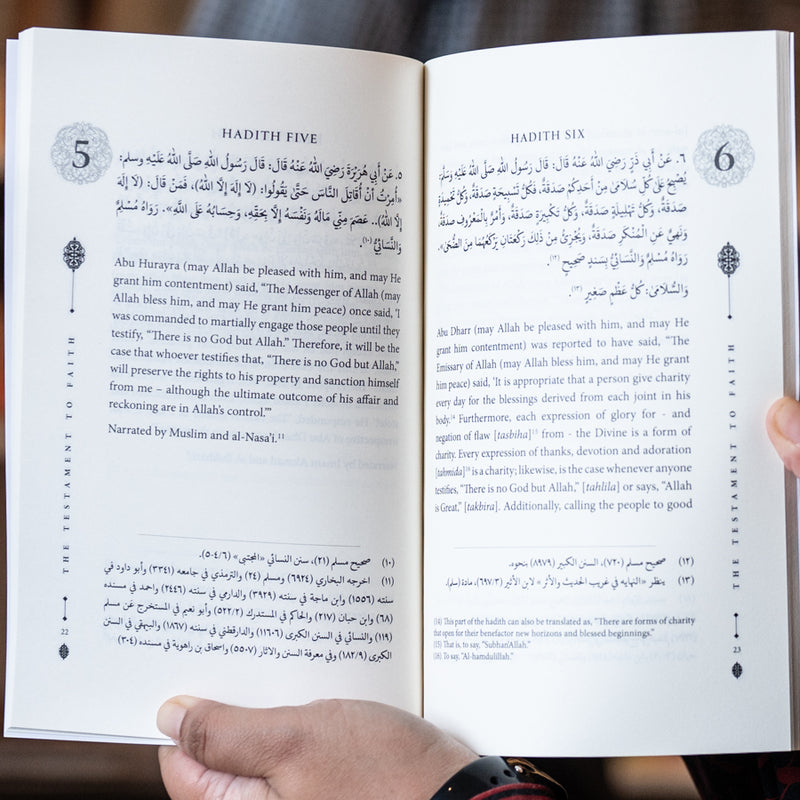 HADITH FIVE
5
٥. عَنْ أَبِي هُرَيْرَةَ رَضِيَ اللهُ عَنْهُ قَالَ: قَالَ رَسُولُ اللهِ صَلَّى اللهُ عَلَيْهِ وسلم:
«أُمِرْتُ أَنْ أُقَاتِلَ النَّاسَ حَتَّى يَقُولُوا: (لَا إِلَهَ إِلَّا اللهُ)، فَمَنْ قَالَ: (لَا إِلَهَ
إِلَّا اللهُ).. عَصَمَ مِنِّي مَالَهُ وَنَفْسَهُ إِلَّا بِحَقِّهِ، وَحِسَابُهُ عَلَى اللَّهِ». رَوَاهُ مُسْلِمٌ
وَالنَّسَائِيُّ (١٠).
Abu Hurayra (may Allah be pleased with him, and may He
grant him contentment) said, “The Messenger of Allah (may
Allah bless him, and may He grant him peace) once said, ‘I
was commanded to martially engage those people until they
testify, “There is no God but Allah.” Therefore, it will be the
case that whoever testifies that, “There is no God but Allah,”
will preserve the rights to his property and sanction himself
from me – although the ultimate outcome of his affair and
reckoning are in Allah’s control.’”
Narrated by Muslim and al-Nasa’i.¹¹
(١٠) صحيح مسلم (٢١)، سنن النسائي «المجتبى» (٥-٤/٦).
(١١) اخرجه البخاري (٦٩٢٤) ومسلم (٢٤) والترمذي في جامعه (٣٣٤١) وأبو داود في
سننه (١٥٥٦) وابن ماجة في سننه (٣٩٢٩) والداري في سننه (٢٤٤٦) واحمد في مسنده
(٦٨) وابن حبان (٢١٧) والحاكم في المستدرك (٥٢٢/٢) وأبو نعيم في المستخرج عن مسلم
(١١٩) والنسائي في السنن الكبرى (١١٦٠٦) والدارقطني في سننه (١٨٦٧) والبيهقي في السنن
الكبرى (١٨٢/٩) وفي معرفة السنن والاثار (٥٥٠٧) واسحاق بن راهوية في مسنده (٣٠٤)
THE TESTAMENT TO FAITH
22
HADITH SIX
6
٦. عَنْ أَبِي ذَرٍّ رَضِيَ اللهُ عَنْهُ قَالَ: قَالَ رَسُولُ اللهِ صَلَّى اللهُ عَلَيْهِ وَسَلَّمَ
يُصْبِحُ عَلَى كُلِّ سُلَامَى مِنْ أَحَدِكُمْ صَدَقَةٌ، فَكُلُّ تَسْبِيحَةٍ صَدَقَةٌ، وَكُلُّ تَحْمِيدَةٍ
صَدَقَةٌ، وَكُلُّ تَهْلِيلَةٍ صَدَقَةٌ، وَكُلُّ تَكْبِيرَةٍ صَدَقَةٌ، وَأَمْرٌ بِالْمَعْرُوفِ صَدَقَةٌ،
وَنَهْيٌ عَنِ الْمُنْكَرِ صَدَقَةٌ، وَيُجْزِئُ مِنْ ذَلِكَ رَكْعَتَانِ يَرْكَعُهُمَا مِنَ الضُّحَى».
رَوَاهُ مُسْلِمٌ وَالنَّسَائِيُّ بِسَنَدٍ صَحِيحٍ (١٢).
وَالسُّلَامَى: كُلُّ عَظْمٍ صَغِيرٍ (١٣).
Abu Dharr (may Allah be pleased with him, and may He
grant him contentment) was reported to have said, “The
Emissary of Allah (may Allah bless him, and may He grant
him peace) said, ‘It is appropriate that a person give charity
every day for the blessings derived from each joint in his
body.¹⁴ Furthermore, each expression of glory for - and
negation of flaw [tasbiha]¹⁵ from - the Divine is a form of
charity. Every expression of thanks, devotion and adoration
[tahmida]¹⁶ is a charity; likewise, is the case whenever anyone
testifies, “There is no God but Allah,” [tahlila] or says, “Allah
is Great,” [takbira]. Additionally, calling the people to good
(١٢) صحيح مسلم (٧٢٠)، السنن الكبير (٨٩٧٩) بنحوه.
(١٣) ينظر «النهايه في غريب الحديث والأثر» لابن الأثير (٦٩٧/٣)، مادة (سلم).
(14) This part of the hadith can also be translated as, “There are forms of charity
that open for their benefactor new horizons and blessed beginnings.”
(15) That is, to say, “Subhan’Allah.”
(16) To say, “Al-hamdulillah.”
THE TESTAMENT TO FAITH
23